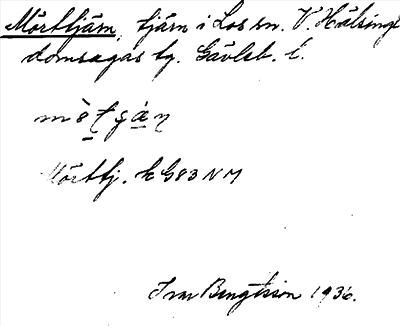 Mörttjärn, tjärn i Los sn. V. Hälsingl
domsagas tg. Gävleb. l.
Mörttj. k G83 NM
Ivar Bengtsson 1936.